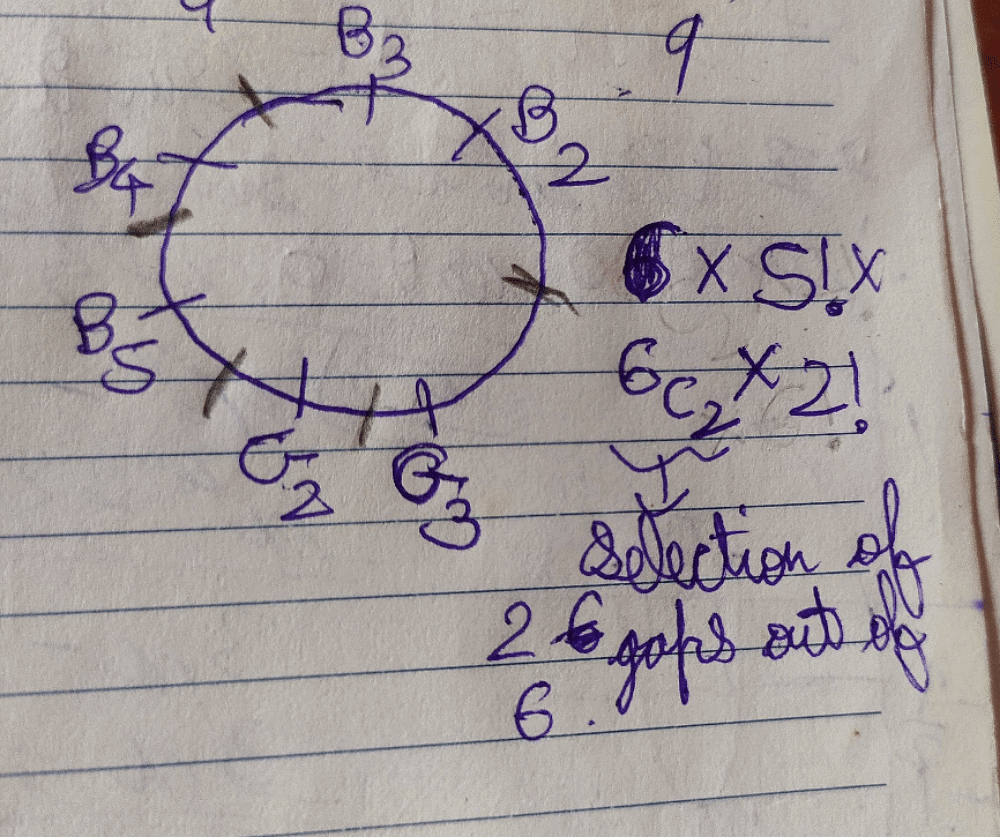 9
B3
B2
B4
B5
G2
G3
6 x 5! x
6C2 x 2!
Selection of
2 gaps out of
6.